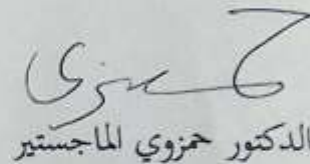 الدكتور حمزوي الماجستير